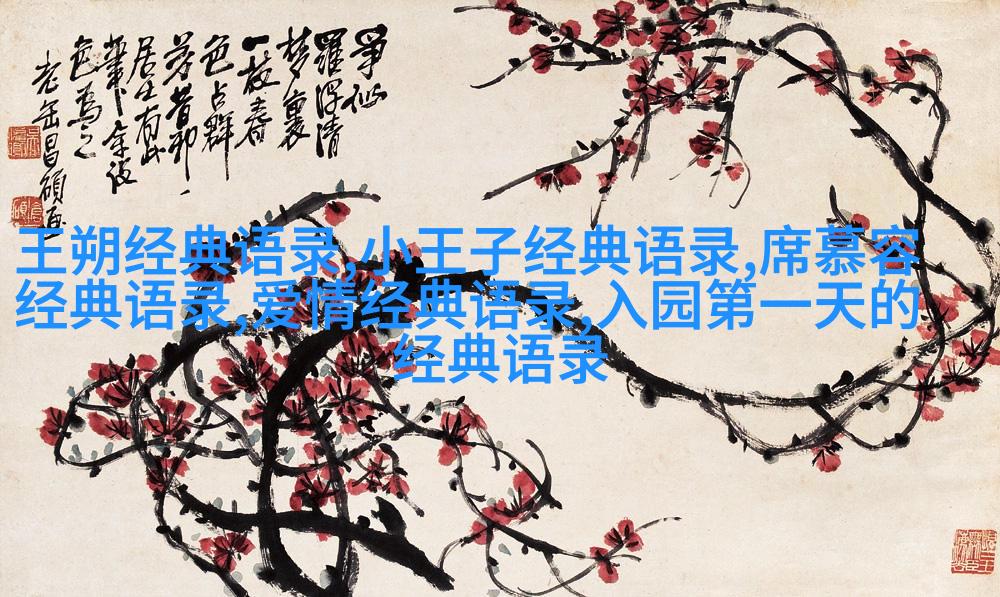 爭似
羅浮清
梦裏
一枝春
色占群
芳昔邪
居士有此
余
色為之
老缶昌碩
王朔经典语录,小王子经典语录,席慕容
经典语录,爱情经典语录,入园第一天的
经典语录